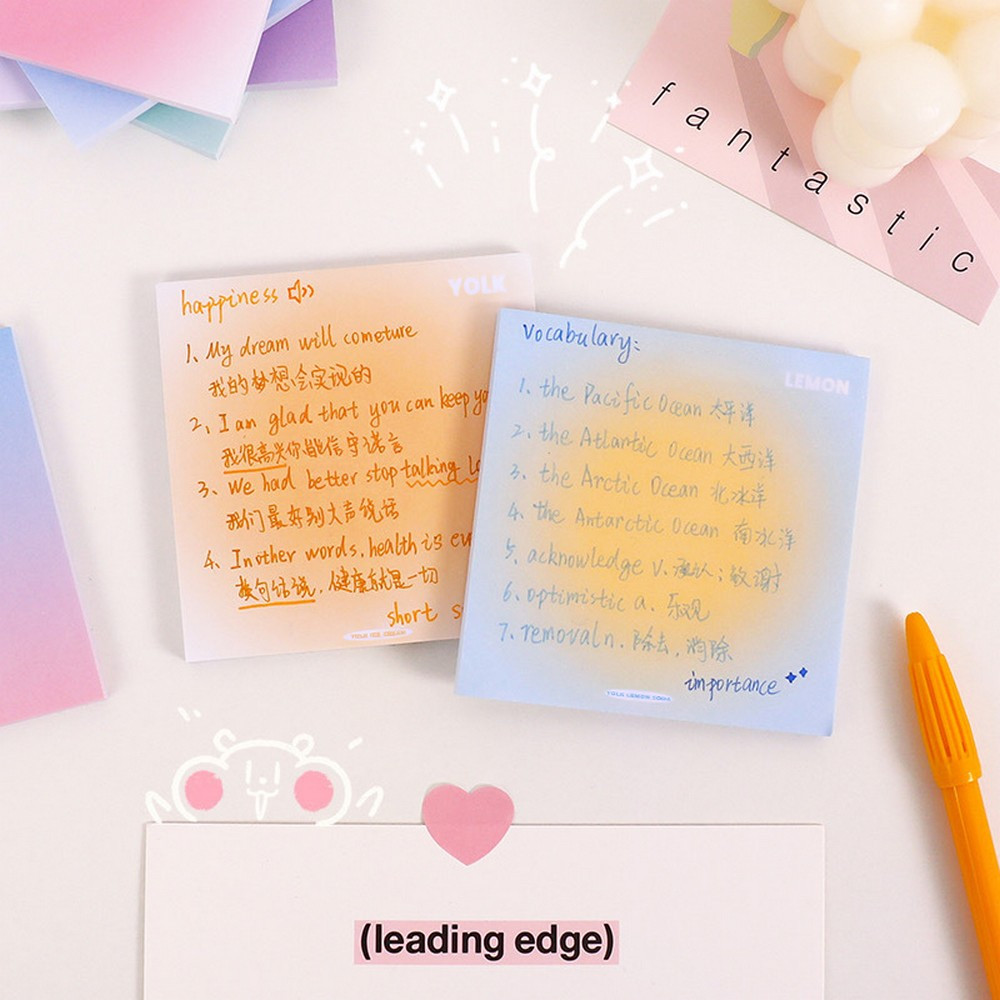 fantastic
YOLK
happiness
1、My dream will cometure
我的梦想会实现的
2、I am glad that you can keep yo
我很高兴你能信守诺言
3、We had better stop talking lo
我们最好别大声说话
4、In other words, health is ev
换句话说，健康就是一切
short s
YOLK ICE CREAM
LEMON
Vocabulary:
1、the Pacific Ocean 太平洋
2、the Atlantic Ocean 大西洋
3、the Arctic Ocean 北冰洋
4、the Antarctic Ocean 南冰洋
5、acknowledge v. 承认；致谢
6、optimistic a. 乐观
7、removal n. 除去，消除
importance
YOLK LEMON SODA
(leading edge)